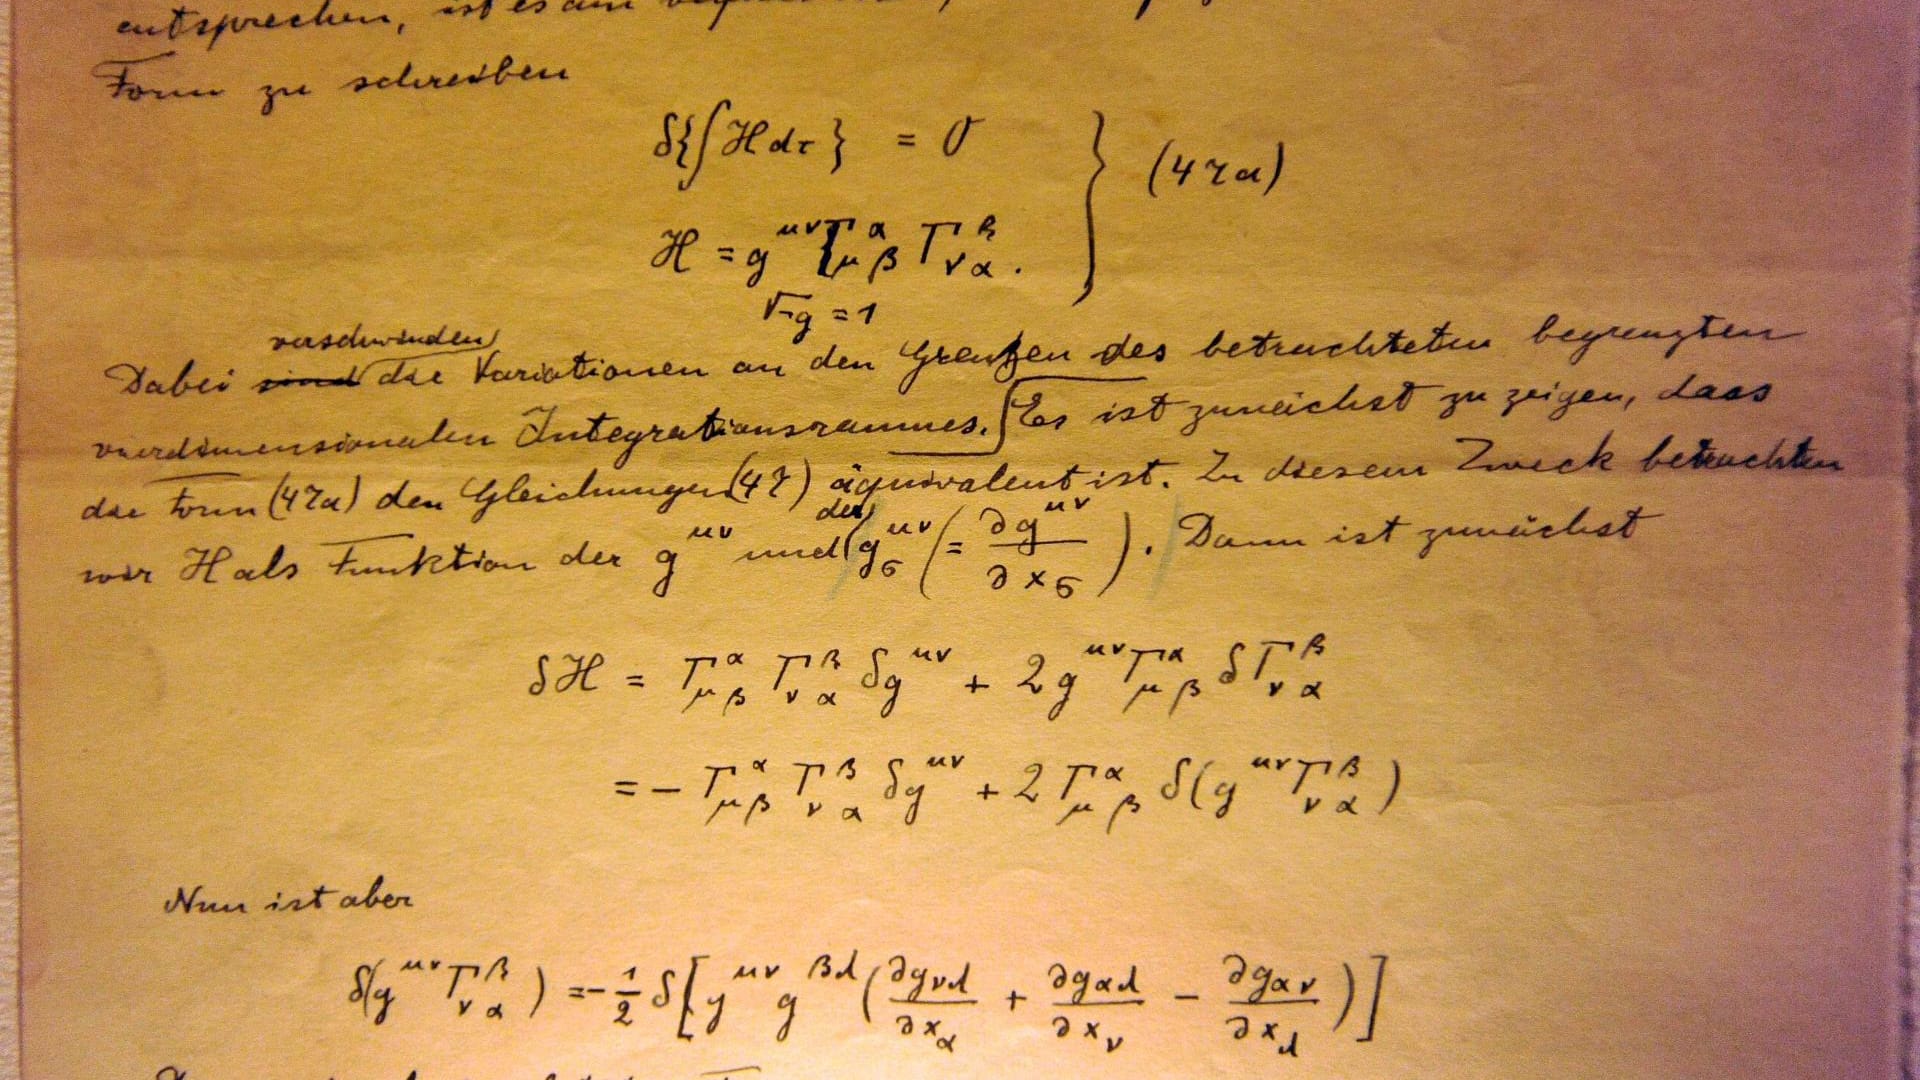 entsprechen, ist es am
Form zu schreiben
δ{∫H dτ} = 0 } (47a)
H = g^{μν} Γ^α_{μβ} Γ^β_{να}.
√-g = 1
verschwinden
Dabei sind die Variationen an den Grenzen des betrachteten begrenzten
vierdimensionalen Integrationsraumes. Es ist zunächst zu zeigen, dass
die Form (47a) den Gleichungen (47) äquivalent ist. Zu diesem Zweck betrachten
der
wir H als Funktion der g^{μν} und g^{μν}_σ (= ∂g^{μν}/∂x_σ). Dann ist zunächst
δH = Γ^α_{μβ} Γ^β_{να} δg^{μν} + 2g^{μν} Γ^α_{μβ} δΓ^β_{να}
= - Γ^α_{μβ} Γ^β_{να} δg^{μν} + 2 Γ^α_{μβ} δ(g^{μν} Γ^β_{να})
Nun ist aber
δ(g^{μν} Γ^β_{να}) = - 1/2 δ[g^{μν} g^{βλ} (∂g_{νλ}/∂x_α + ∂g_{αλ}/∂x_ν - ∂g_{αν}/∂x_λ)]